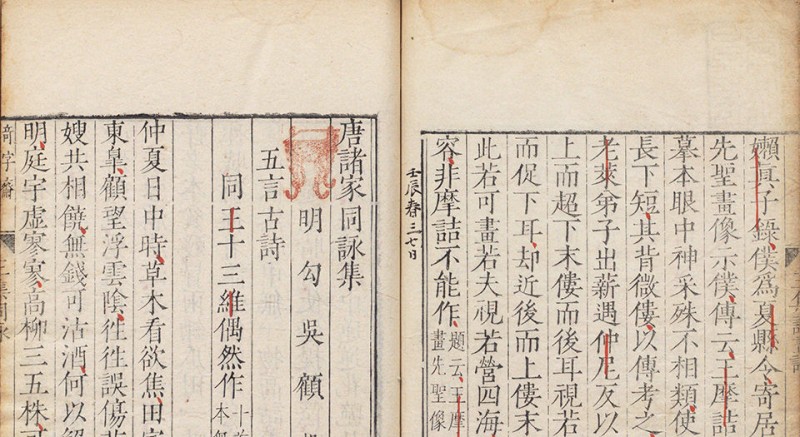 嬾眞子錄僕爲夏縣令寄居
先聖畫像示僕傳云王摩詰
摹本眼中神采殊不相類使
長下短其背微僂以傳考之
老萊弟子出薪遇仲尼反以
上而超下末僂而後耳視若
而促下耳却近後而上僂末
此若可畫若夫視若營四海
容非摩詰不能作
題云王摩
畫先聖像
壬辰春三七日
唐諸家同詠集
明勾吳顧
五言古詩
同王十三維偶然作
十首
仲夏日中時草木看欲焦田
東皐顧望浮雲陰往往誤傷
嫂共相饒無錢可沽酒何以
明庭宇虛寥寥高柳三五株可
字齋
集同詠